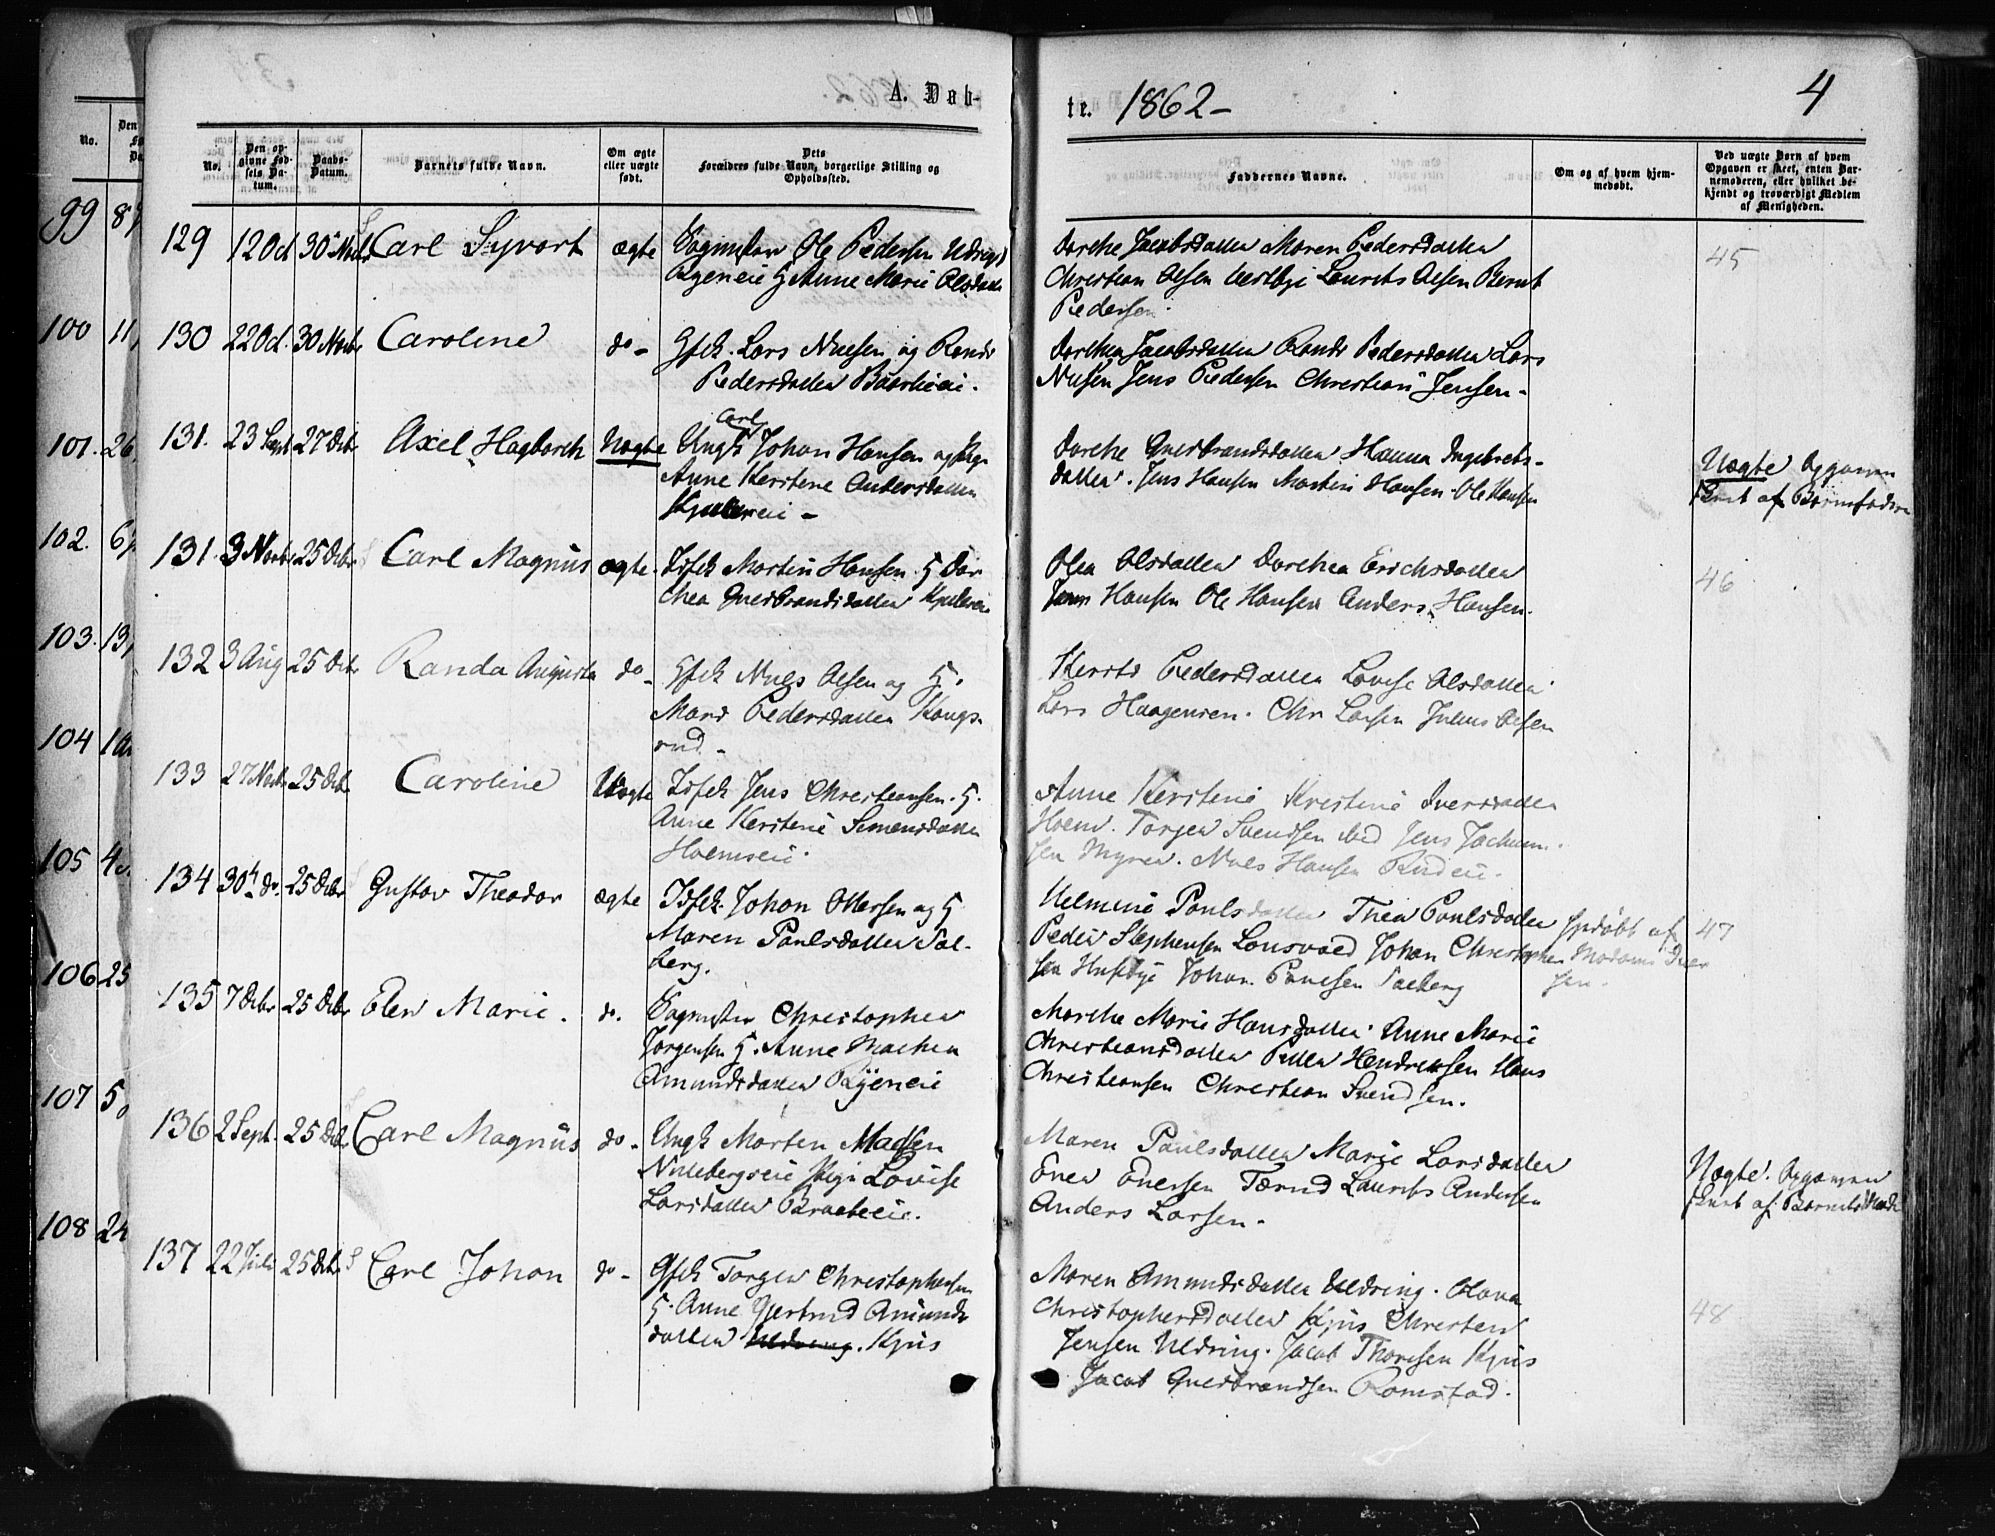 A. Døb-
te. 1862-
4
No.
Den op-
givne Fød-
sels Da-
tum.
Daabs-
Datum.
Barnets fulde Navn.
Om ægte
eller uægte
født.
Dets
Forældres fulde Navn, borgerlige Stilling og
Opholdssted.
Faddernes Navne.
Om og af hvem hjem-
medøbt.
Ved uægte Børn af hvem
Opgaven er skeet, enten Bar-
nemoderen, eller hvilket be-
kjendt og troværdigt Medlem
af Menigheden.
No.
99 8
100 11
101. 26
102. 6
103. 13
104
105 4
106 25
107 5
108 24
129 12 Oct 30 Carl Syvart ægte Ole Pedersen
Anne Marie Olsdatter
Dorthe Jacobsdatter Maren Pedersdatter
Christian Olsen Vestbye Laurits Olsen Bernt
Pedersen.
45
130 22 Oct. 30 Novbr Caroline do- Gfck. Lars Nielsen og Randi
Pedersdatter
Dorthea Jacobsdatter Randi Pedersdatter Lars
Nielsen Jens Pedersen Christian Jensen.
131. 23 Sept 27 Dcbr Axel Hagbarth Uægte Ungk Carl Johan Hansen og Pige
Anne Kerstine Andersdatter
Dorthe Gulbrandsdatter Hanna Ingebrets-
datter. Jens Hansen Martin Hansen Ole Hansen
Uægte Opgaven
skeet af Barnefaderen
131. 3 Novbr 25 Decbr Carl Magnus ægte. Martin Hansen. H Dor
thea Gulbrandsdatter
Olea Olsdatter Dorthea Erichsdatter
Hansen Ole Hansen Anders Hansen.
46
132 3 Aug 25 Dcbr Randa Augusta do- Gfck Niels Olsen og H.
Mari Pedersdatter Kongs-
rud-
Kersti Pedersdatter Lovise Olsdatter
Lars Haagensen. Chr Larsen Julius Olsen
133 27 Novbr 25 Dcbr Caroline Uægte Jens Christiansen. H.
Anne Kerstine Simensdatter
Holmseie.
Anne Kerstine Kristine Iversdatter
Holm. Torger Svendsen Jens Jochum-
sen Myren. Niels Hansen Rudeie.
134 30te do. 25 Decbr Gustav Theodor ægte Johan Ottersen og H
Maren Paulsdatter Sol-
berg.
Helmine Paulsdatter Thea Paulsdatter
Peder Stephensen Johan Christophen
sen Huseby Johan Paulsen Solberg
Hjdøbt af
Madam Iver
sen.
47
135 7 Debr 25 Debr Elen Marie. do. Christopher
Jørgensen H. Anne Mathea
Amundsdatter Ryeneie
Marthe Marie Hansdatter Anne Marie
Christiansdatter Peder Hendriksen Hans
Christiansen Christian Svendsen.
136 2 Sept. 25 Dcbr Carl Magnus do- Ungk Morten Madsen
Pige Lovise
Larsdatter Braateeie.
Maren Paulsdatter Marie Larsdatter
Even Evensen Laurits Andersen
Anders Larsen.
Uægte. Opgaven
skeet af Barnets Moder
137 22 Juli 25 Decbr Carl Johan do- Gfck Torger Christophersen
H. Anne Gjertrud Amunds
datter Uldring. Kjus
Maren Amundsdatter Uldring. Olava
Christophersdatter Kjus Christen
Jensen Uldring. Jacob Thoresen Kjus
Jacob Gulbrandsen Romstad.
48